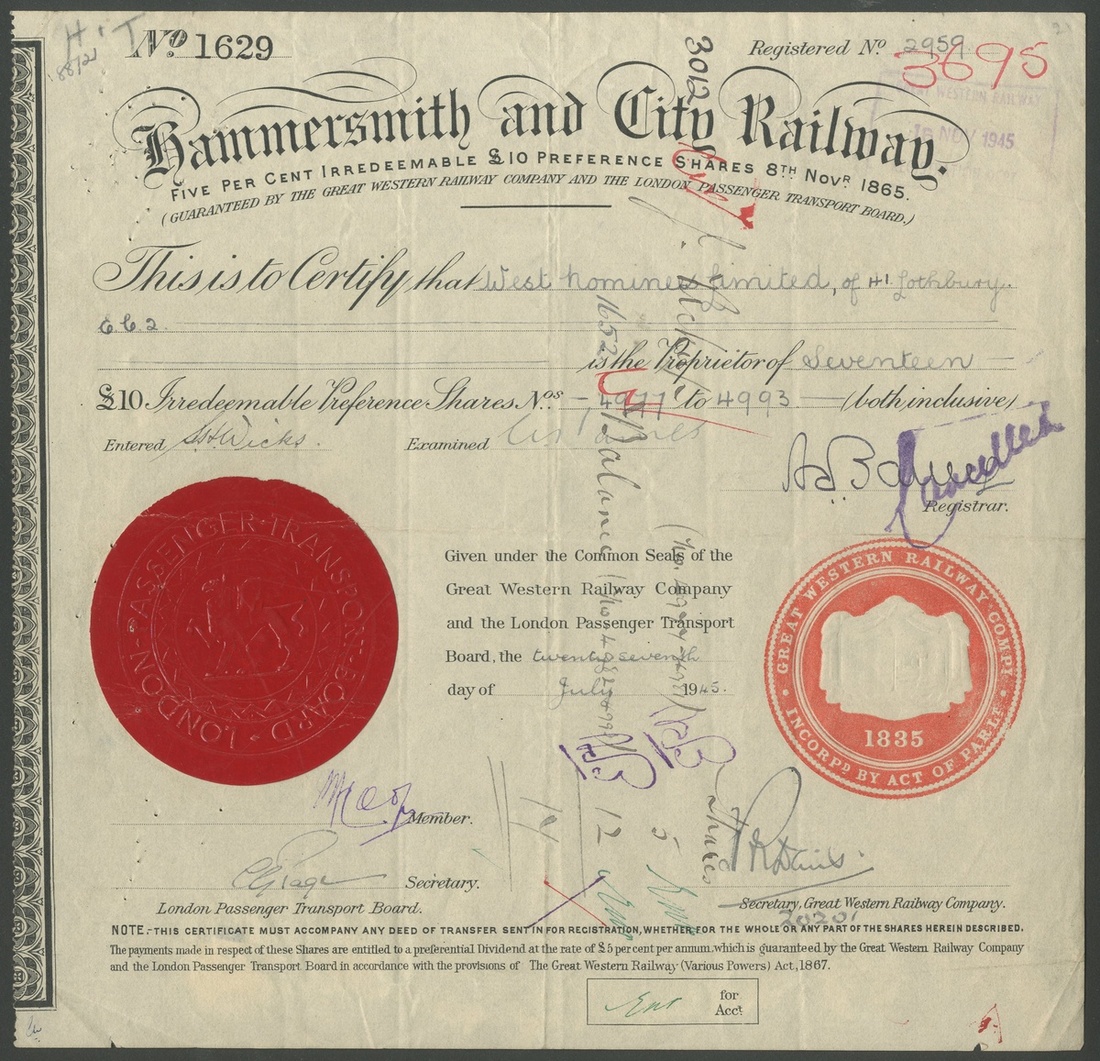 H & T
Nº 1629
Registered Nº 2959
3695
GREAT WESTERN RAILWAY
16 NOV 1945
Hammersmith and City Railway.
FIVE PER CENT IRREDEEMABLE £10 PREFERENCE SHARES 8TH NOVR 1865.
(GUARANTEED BY THE GREAT WESTERN RAILWAY COMPANY AND THE LONDON PASSENGER TRANSPORT BOARD.)
This is to Certify that West Nominees Limited, of 41 Lothbury.
E.C.2.
is the Proprietor of Seventeen
£10 Irredeemable Preference Shares Nos – 4977 to 4993 — (both inclusive)
Entered S.H. Wicks. Examined
Cancelled
Registrar.
LONDON · PASSENGER · TRANSPORT · BOARD ·
Given under the Common Seals of the
Great Western Railway Company
and the London Passenger Transport
Board, the twenty seventh
day of July 1945.
GREAT WESTERN RAILWAY COMPY
1835
INCORPD BY ACT OF PARLT
3012
1652
Balance
12
5
Shares
Member.
Secretary.
London Passenger Transport Board.
Secretary, Great Western Railway Company.
2020
NOTE.–THIS CERTIFICATE MUST ACCOMPANY ANY DEED OF TRANSFER SENT IN FOR REGISTRATION, WHETHER FOR THE WHOLE OR ANY PART OF THE SHARES HEREIN DESCRIBED.
The payments made in respect of these Shares are entitled to a preferential Dividend at the rate of £5 per cent per annum. which is guaranteed by the Great Western Railway Company
and the London Passenger Transport Board in accordance with the provisions of The Great Western Railway (Various Powers) Act, 1867.
for
Acct